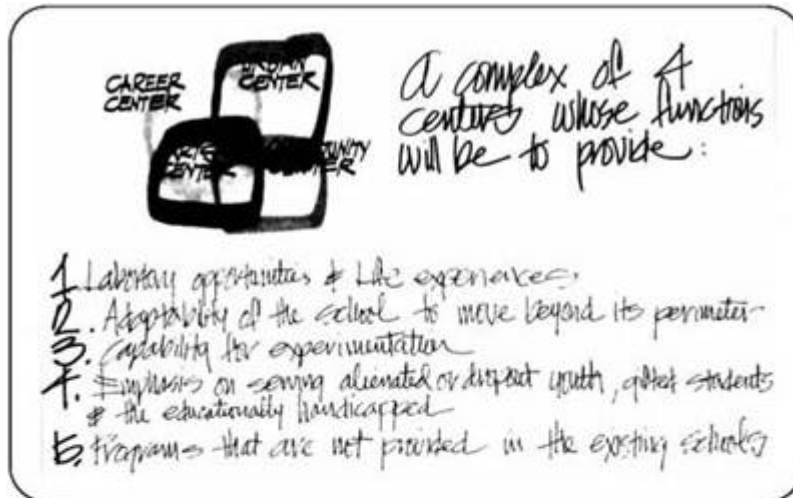 CAREER
CENTER
URBAN
CENTER
ARTS
CENTER
COMMUNITY
CENTER
A complex of 4
centers whose functions
will be to provide:
1. Laboratory opportunities & Life experiences
2. Adaptability of the school to move beyond its perimeter
3. Capability for experimentation
4. Emphasis on serving alienated or dropout youth, gifted students
& the educationally handicapped
5. Programs that are not provided in the existing schools